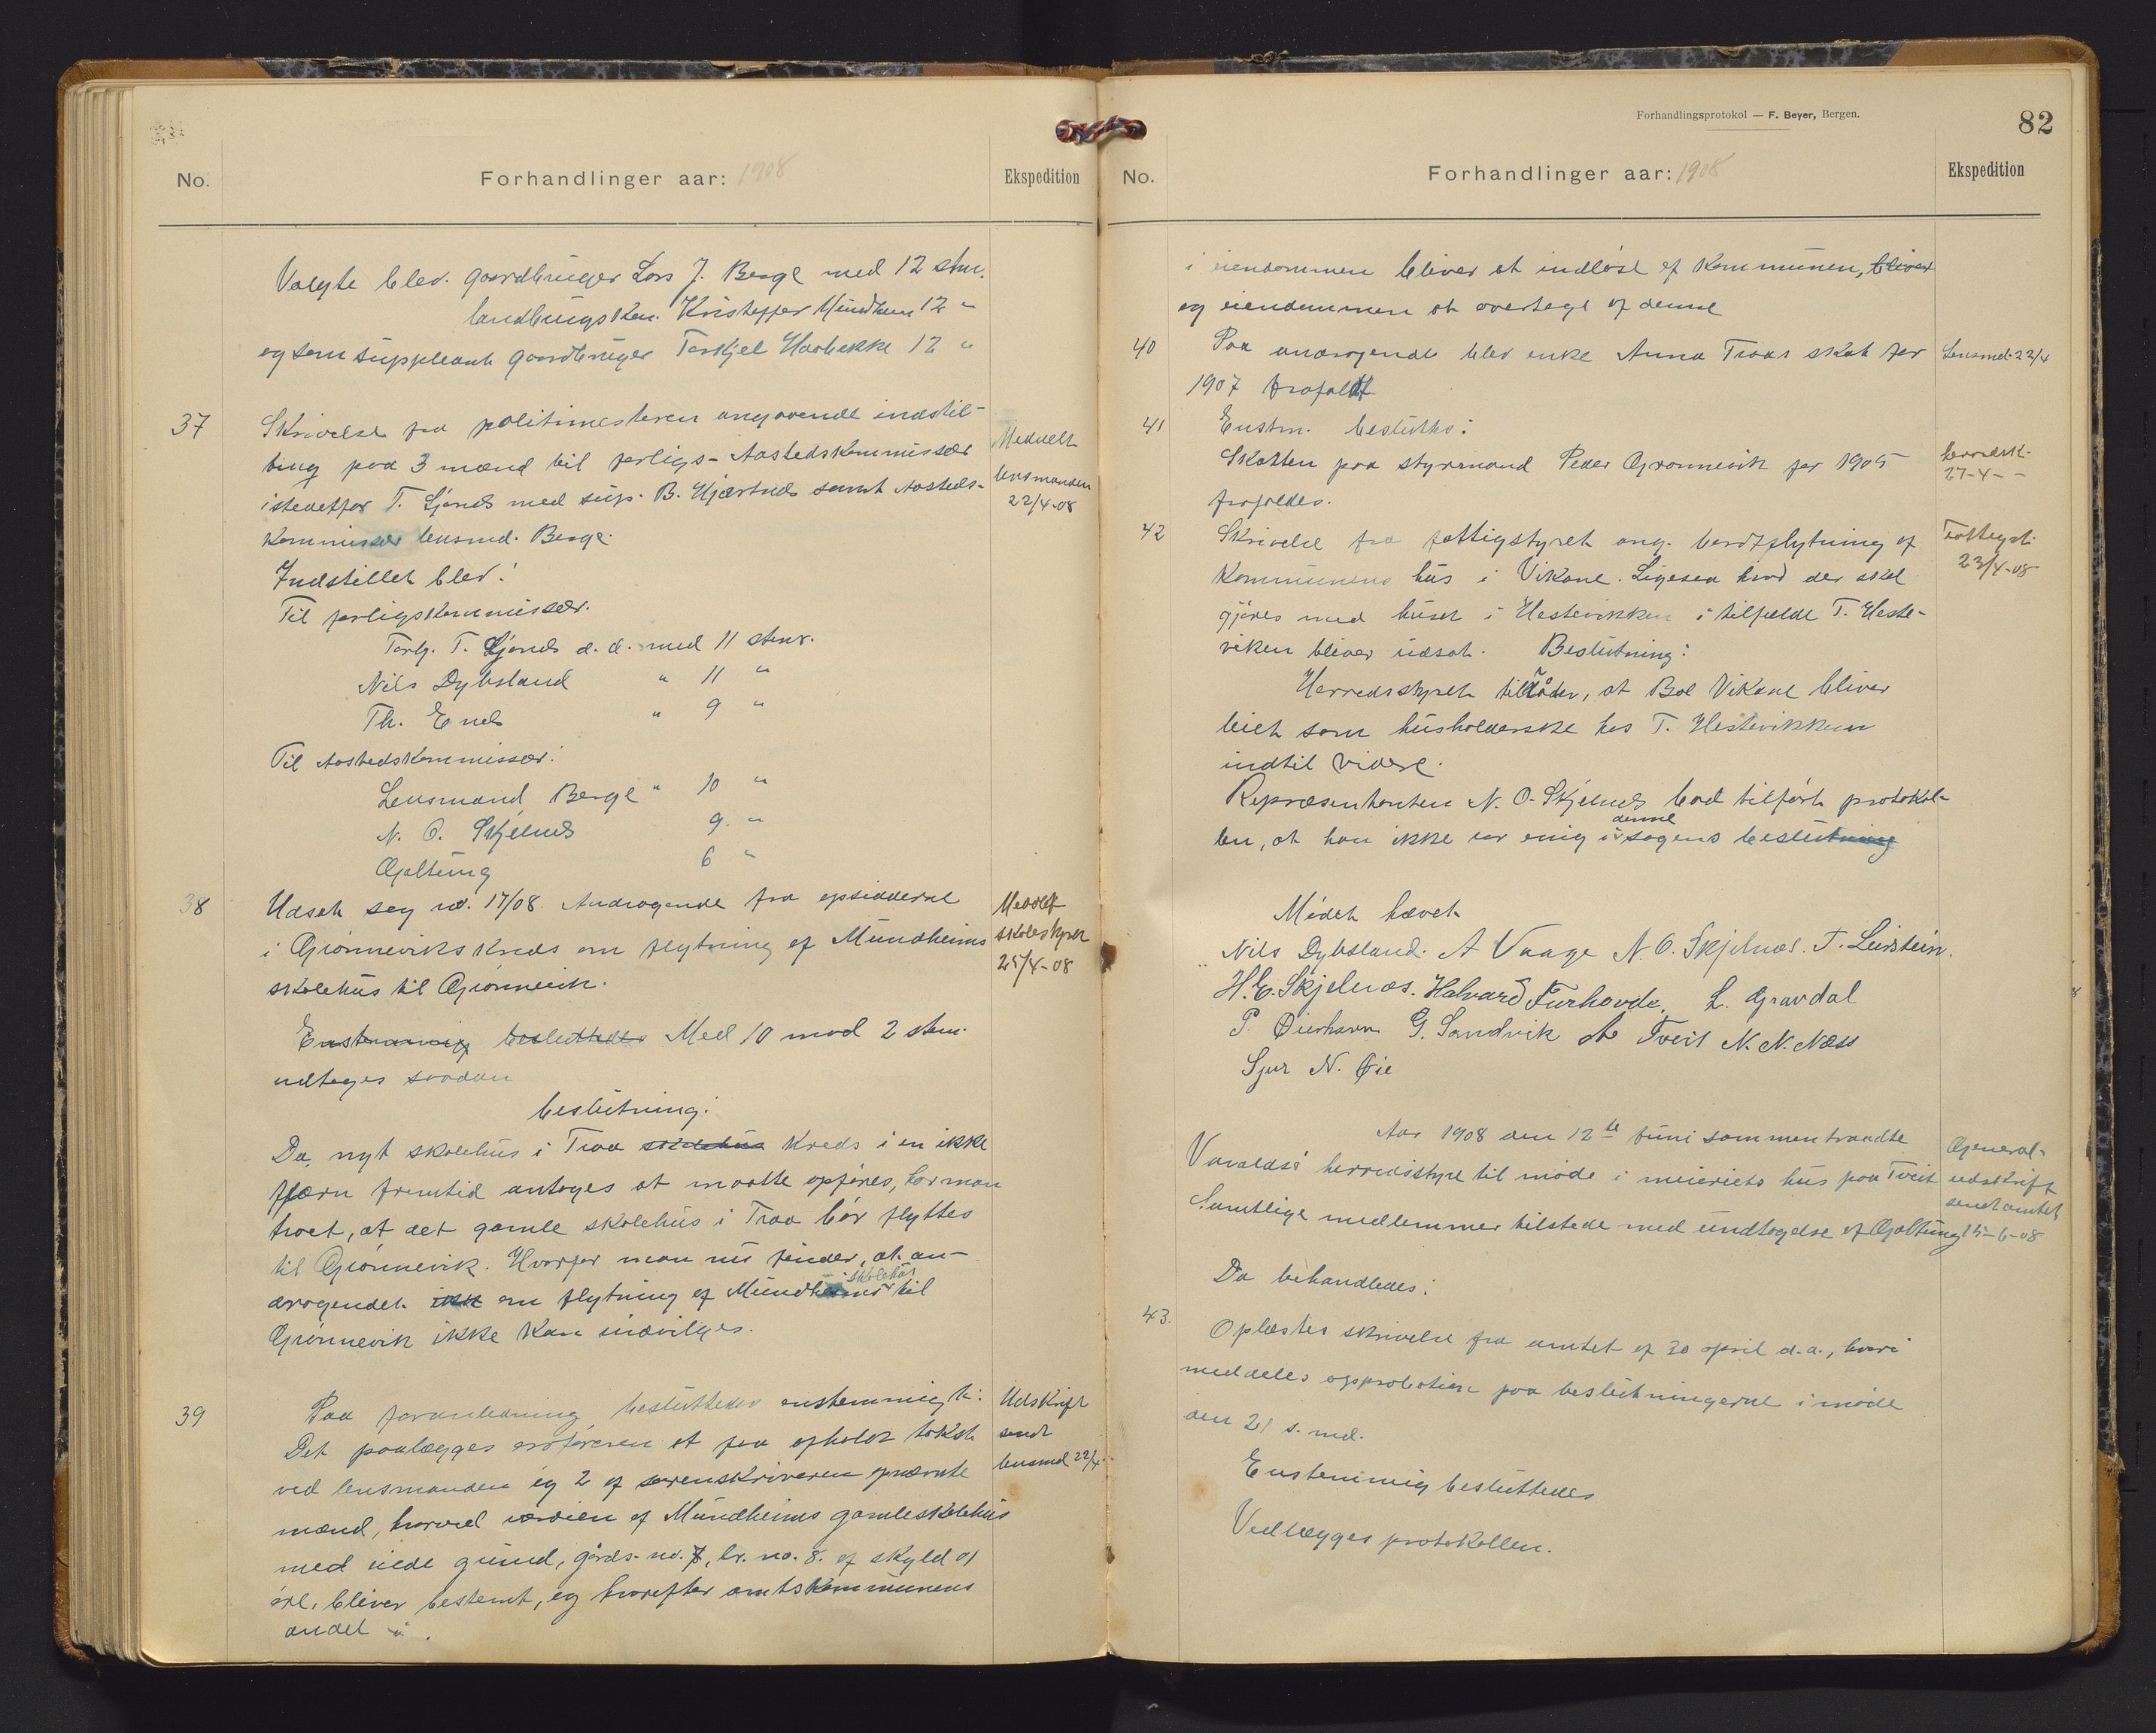 No.
Forhandlinger aar: 1908
Ekspedition
Valgte blev. gaardbruger Lars J. Berge med 12 stm.
landbrugskan. Kristoffer Mundheim 12 "
og som suppleant gaardbruger Torkjel Haabekke 12 "
37
Skrivelse fra politimesteren angaaende indstil-
ling paa 3 mænd til forligs- Aastedskommissær
istedetfor T. Ljones med sup. B. Hjærtnes samt Aasteds-
kommissær lensmd. Berge.
Meddelt
lensmanden
22/4-08
Indstillet blev:
Til forligskommissær.
Torb. T. Ljones d. d. med 11 stmr.
Nils Dybsland " 11 "
Th. Enes " 9 "
Til Aastedskommissær:
Lensmand Berge " 10 "
N. O. Skjelnes 9. "
Gjaltung 6 "
38
Udsat sag no. 17/08. Andragende fra opsidderne
i Grønneviks kreds om flytning af Mundheims
skolehus til Grønnevik.
Meddelt
skolestyret
25/4-08
Enstemmig besluttedes Med 10 mod 2 stem.
udtoges saadan
beslutning:
Da, nyt skolehus i Traa skolehus kreds i en ikke
fjærn fremtid antages at maatte opføres, har man
troet, at det gamle skolehus i Traa bør flyttes
til Grønnevik. Hvorfor man nu finder, at an-
dragendet ikke om flytning af Mundheims skolehus til
Grønnevik ikke kan indvilges.
39
Paa foranledning besluttedes enstemmigt:
Det paalægges ordføreren at faa afholdt takst
ved lensmanden og 2 af sorenskriveren opnævnte
mænd, hvorved værdien af Mundheims gamle skolehus
med iede grund, gårds. no. 7, br. no. 8. af skyld 01
øre, bliver bestemt, og hvorefter amtskommunens
andel i
Udskrift
sendt
lensmd 22/4
Forhandlingsprotokol — F. Beyer, Bergen.
82
No.
Forhandlinger aar: 1908
Ekspedition
i eiendommen bliver at indløse af kommunen, bliver
og eiendommen at overtage af denne
40
Paa andragende blev enke Anna Traas skat for
1907 frafaldt
Lensmd. 22/4
41
Enstm. besluttes:
Skatten paa styrmand Peder Grønnevik for 1905
frafaldes.
herredsk.
27-4-
42
Skrivelse fra fattigstyret ang. bortflytning af
kommunens hus i Vikane. Ligesaa hvad der skal
gjøres med huset i Hestevikken i tilfælde T. Heste-
viken bliver udsat. Beslutning:
Fattigst.
23/4-08
Herredsstyret tilråder, at Bol Vikane bliver
leiet som husholderske hos T. Hestevikken
indtil videre.
Repræsentanten N. O. Skjelnes bad tilført protokol-
len, at han ikke var enig i denne sagens beslutning
Mødet hævet
Nils Dybsland. A Vaage N. O. Skjelnæs. T. Leirstein.
H. E. Skjelnæs. Halvard Furhovde. L. Gravdal
P. Øierhavn G. Sandvik A Tveit N. N. Næss
Sjur N. Øie
Aar 1908 den 12te juni sammentraadte
Varaldsø herredsstyre til møde i meieriets hus paa Tveit
Samtlige medlemmer tilstede med undtagelse af Gjaltung
General-
udskrift
sendt amtet
15-6-08
Da behandledes:
43.
Oplæstes skrivelse fra amtet af 30 april d. a., hvori
meddeles approbation paa beslutningerne i møde
den 21 s. md.
Enstemmig besluttedes
Vedlægges protokollen.